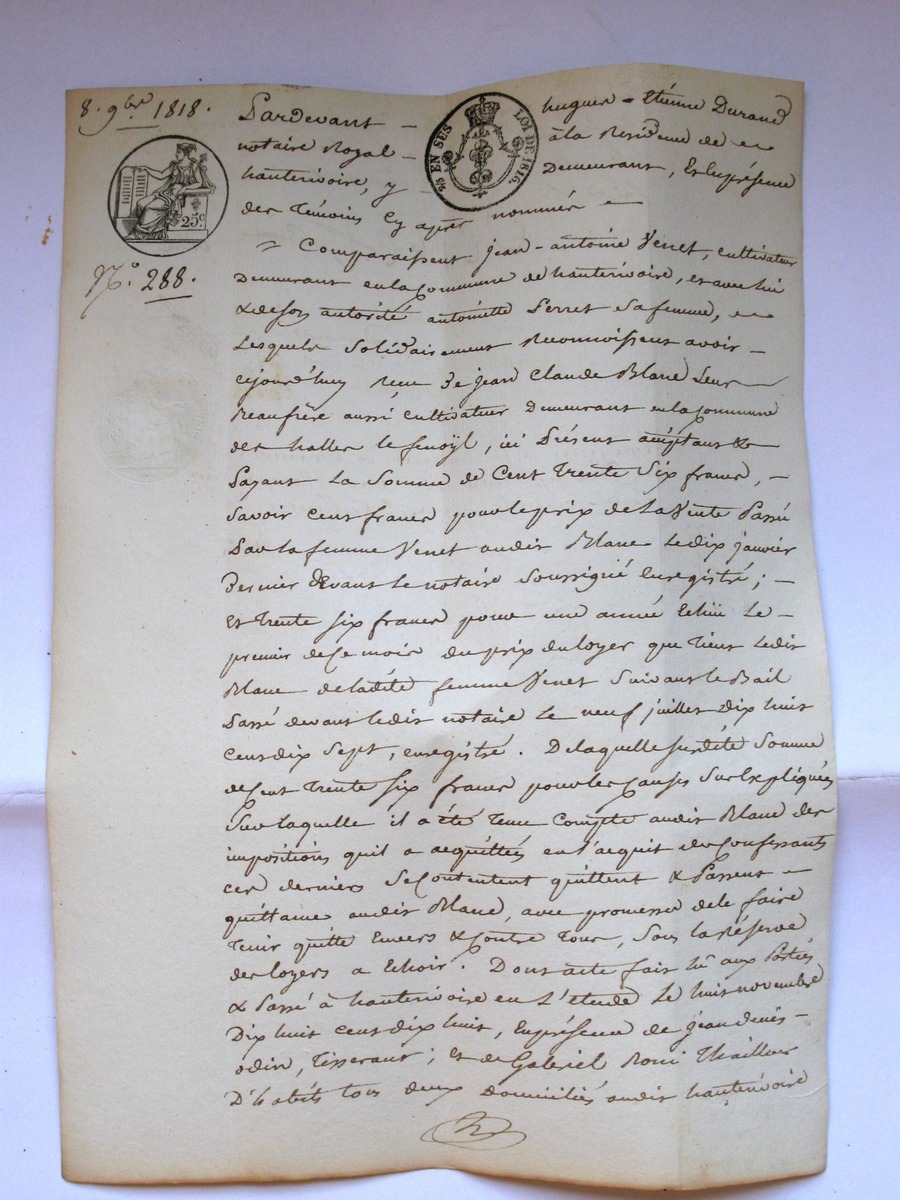 8. 9bre 1818.
25c.
25 EN SUS LOI DE 1816.
N.o 288.
Pardevant hugues - Etienne Durand
notaire Royal à la Residence de
hauterivoire, y Demeurant, En présence
des témoins Cy après nommés
Comparaissent Jean-antoine Venet, cultivateur
Demeurant en la Commune de hauterivoire, et avec lui
& de son autorité antoinette Perret sa femme,
Lesquels Solidairement Reconnoissent avoir
cejourd'huy reçu De jean Claude Blanc Leur
Beaufrère aussi cultivateur Demeurant en la Commune
des halles le fenoÿl, ici Présent acceptant &
Payant La Somme de Cent Trente Six francs,
Savoir cent francs pour le prix de La Vente Passée
Par la femme Venet audit Blanc Le dix janvier
Dernier devant Le notaire Soussigné Enregistré;
Et trente six francs pour une année Echüe Le
premier de Ce mois du prix du loyer que tient Ledit
Blanc de ladite femme Venet Suivant le Bail
Passé devant ledit notaire Le neuf juillet Dix huit
Cent dix Sept, enregistré. De laquelle susdite Somme
de Cent Trente Six francs pour les Causes Sus Expliquées
Sur Laquelle il a été tenu Compte audit Blanc des
impositions quil a acquittées en l'acquit des Confessants
ces derniers Se Contentent quittent & Passent
quittance audit Blanc, avec promesse de le faire
Tenir quitte Envers & Contre Tous, Sous la Réserve
des loyers a Echoir. Dont acte fait lû aux Parties
& Passé à hauterivoire en L'étude Le huit novembre
Dix huit cent dix huit, En présence de jean denis
odin, Tisserant; Et de Gabriel Thailleur
D'habits tous deux domiciliés audit hauterivoire